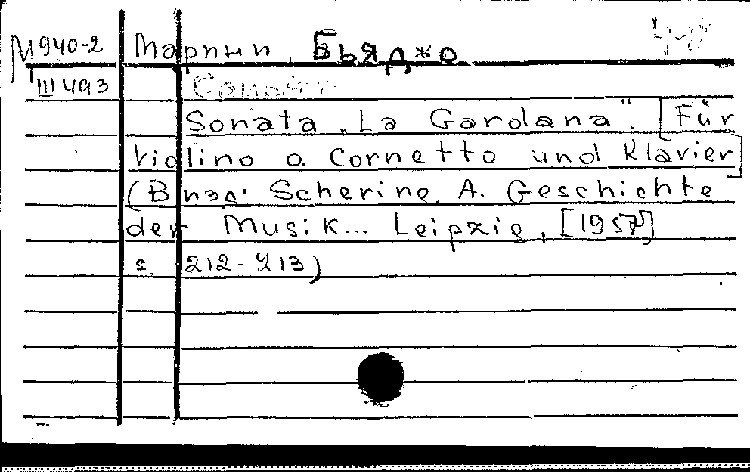 М940-2 Марини, Бьяджо
III 493
Sonata „La Gardana". [Für
violino o cornetto und Klavier]
(В изд. Schering, A. Geschichte
der Musik... Leipzig, [1957]
с. 212-213)